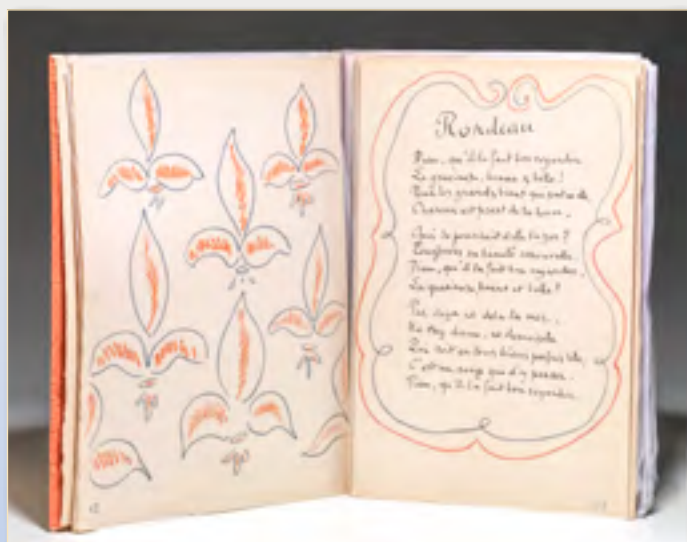 Rondeau
Dieu, qu'il la fait bon regarder
La gracieuse, bonne et belle!
les grands biens que sont en elle
Chacun est prest de la louer.
Qui se pourrait d'elle lasser?
Toujours sa beauté renouvelle.
Dieu, qu'il la fait bon regarder,
La gracieuse, bonne et belle!
Par deça ni dela la mer,
Ne sçay dame, ni damoiselle
Qui soit en tous biens parfais telle,
C'est un songe que d'y penser.
Dieu, qu'il la fait bon regarder.